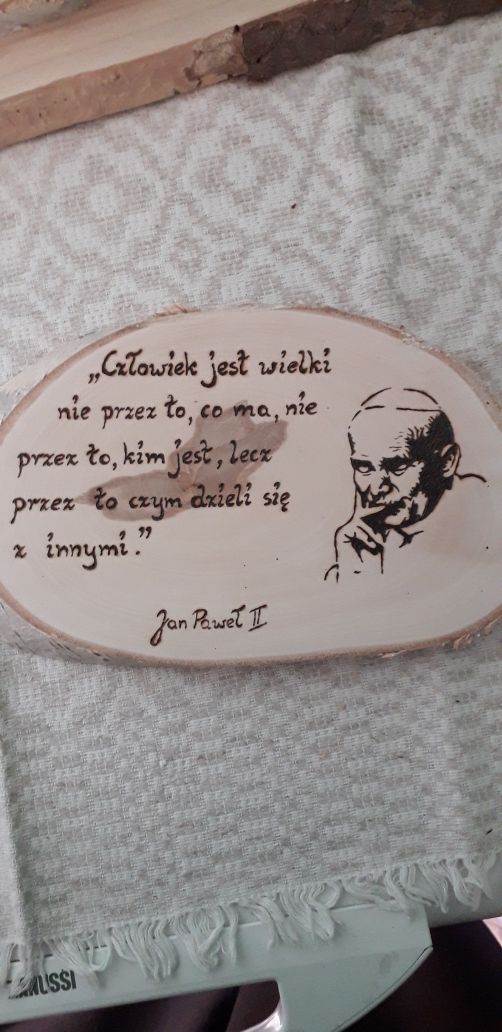 „Człowiek jest wielki
nie przez to, co ma, nie
przez to, kim jest, lecz
przez to czym dzieli się
z innymi.”
Jan Paweł II
ZANUSSI